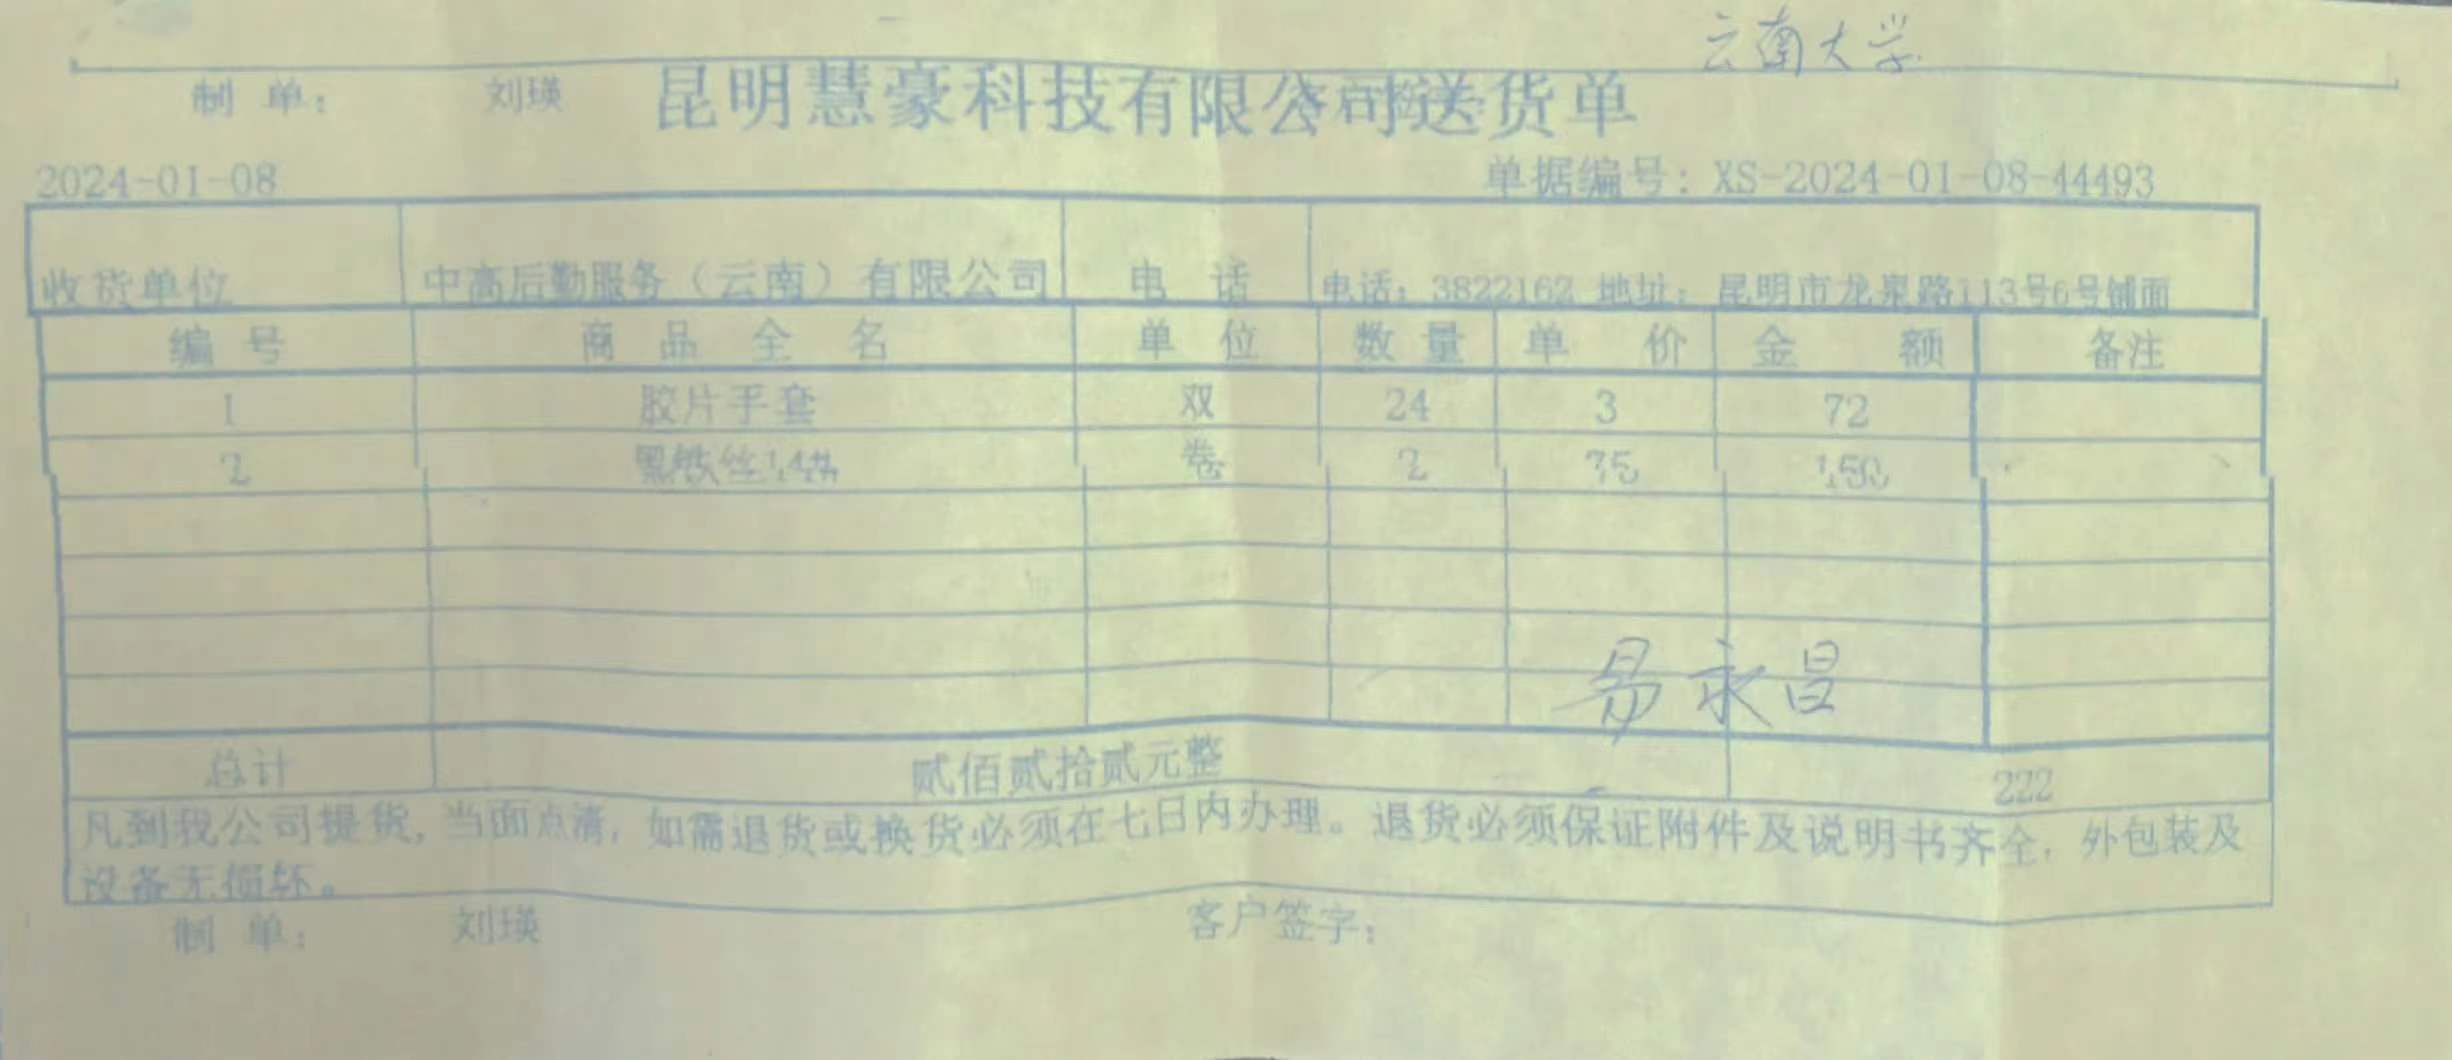 云南大学
制 单： 刘瑛 昆明慧豪科技有限公司送货单
2024-01-08 单据编号：XS-2024-01-08-44493
收货单位 中高后勤服务（云南）有限公司 电 话 电话：3822162 地址：昆明市龙泉路113号6号铺面
编 号 商 品 全 名 单 位 数 量 单 价 金 额 备注
1 胶片手套 双 24 3 72
2 黑铁丝14# 卷 2 75 150
易永昌
总计 贰佰贰拾贰元整 222
凡到我公司提货，当面点清，如需退货或换货必须在七日内办理。退货必须保证附件及说明书齐全，外包装及
设备无损坏。
制 单： 刘瑛 客户签字：